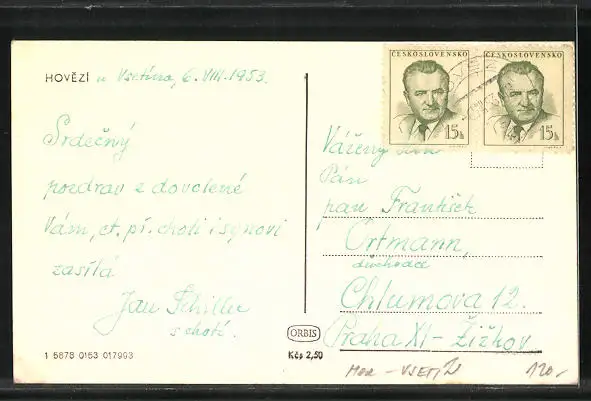 HOVĚZÍ u Vsetína, 6. VIII. 1953.
Srdečný
pozdrav z dovolené
Vám, ct. pí. choti i synovi
zasílá
Jan Schiller
s chotí.
1 5878 0153 017993
ČESKOSLOVENSKO
15h
ČESKOSLOVENSKO
15h
Vážený
Pán
pan František
Ortmann,
důchodce
Chlumova 12.
Praha XI - Žižkov
ORBIS
Kčs 2,50
120,-